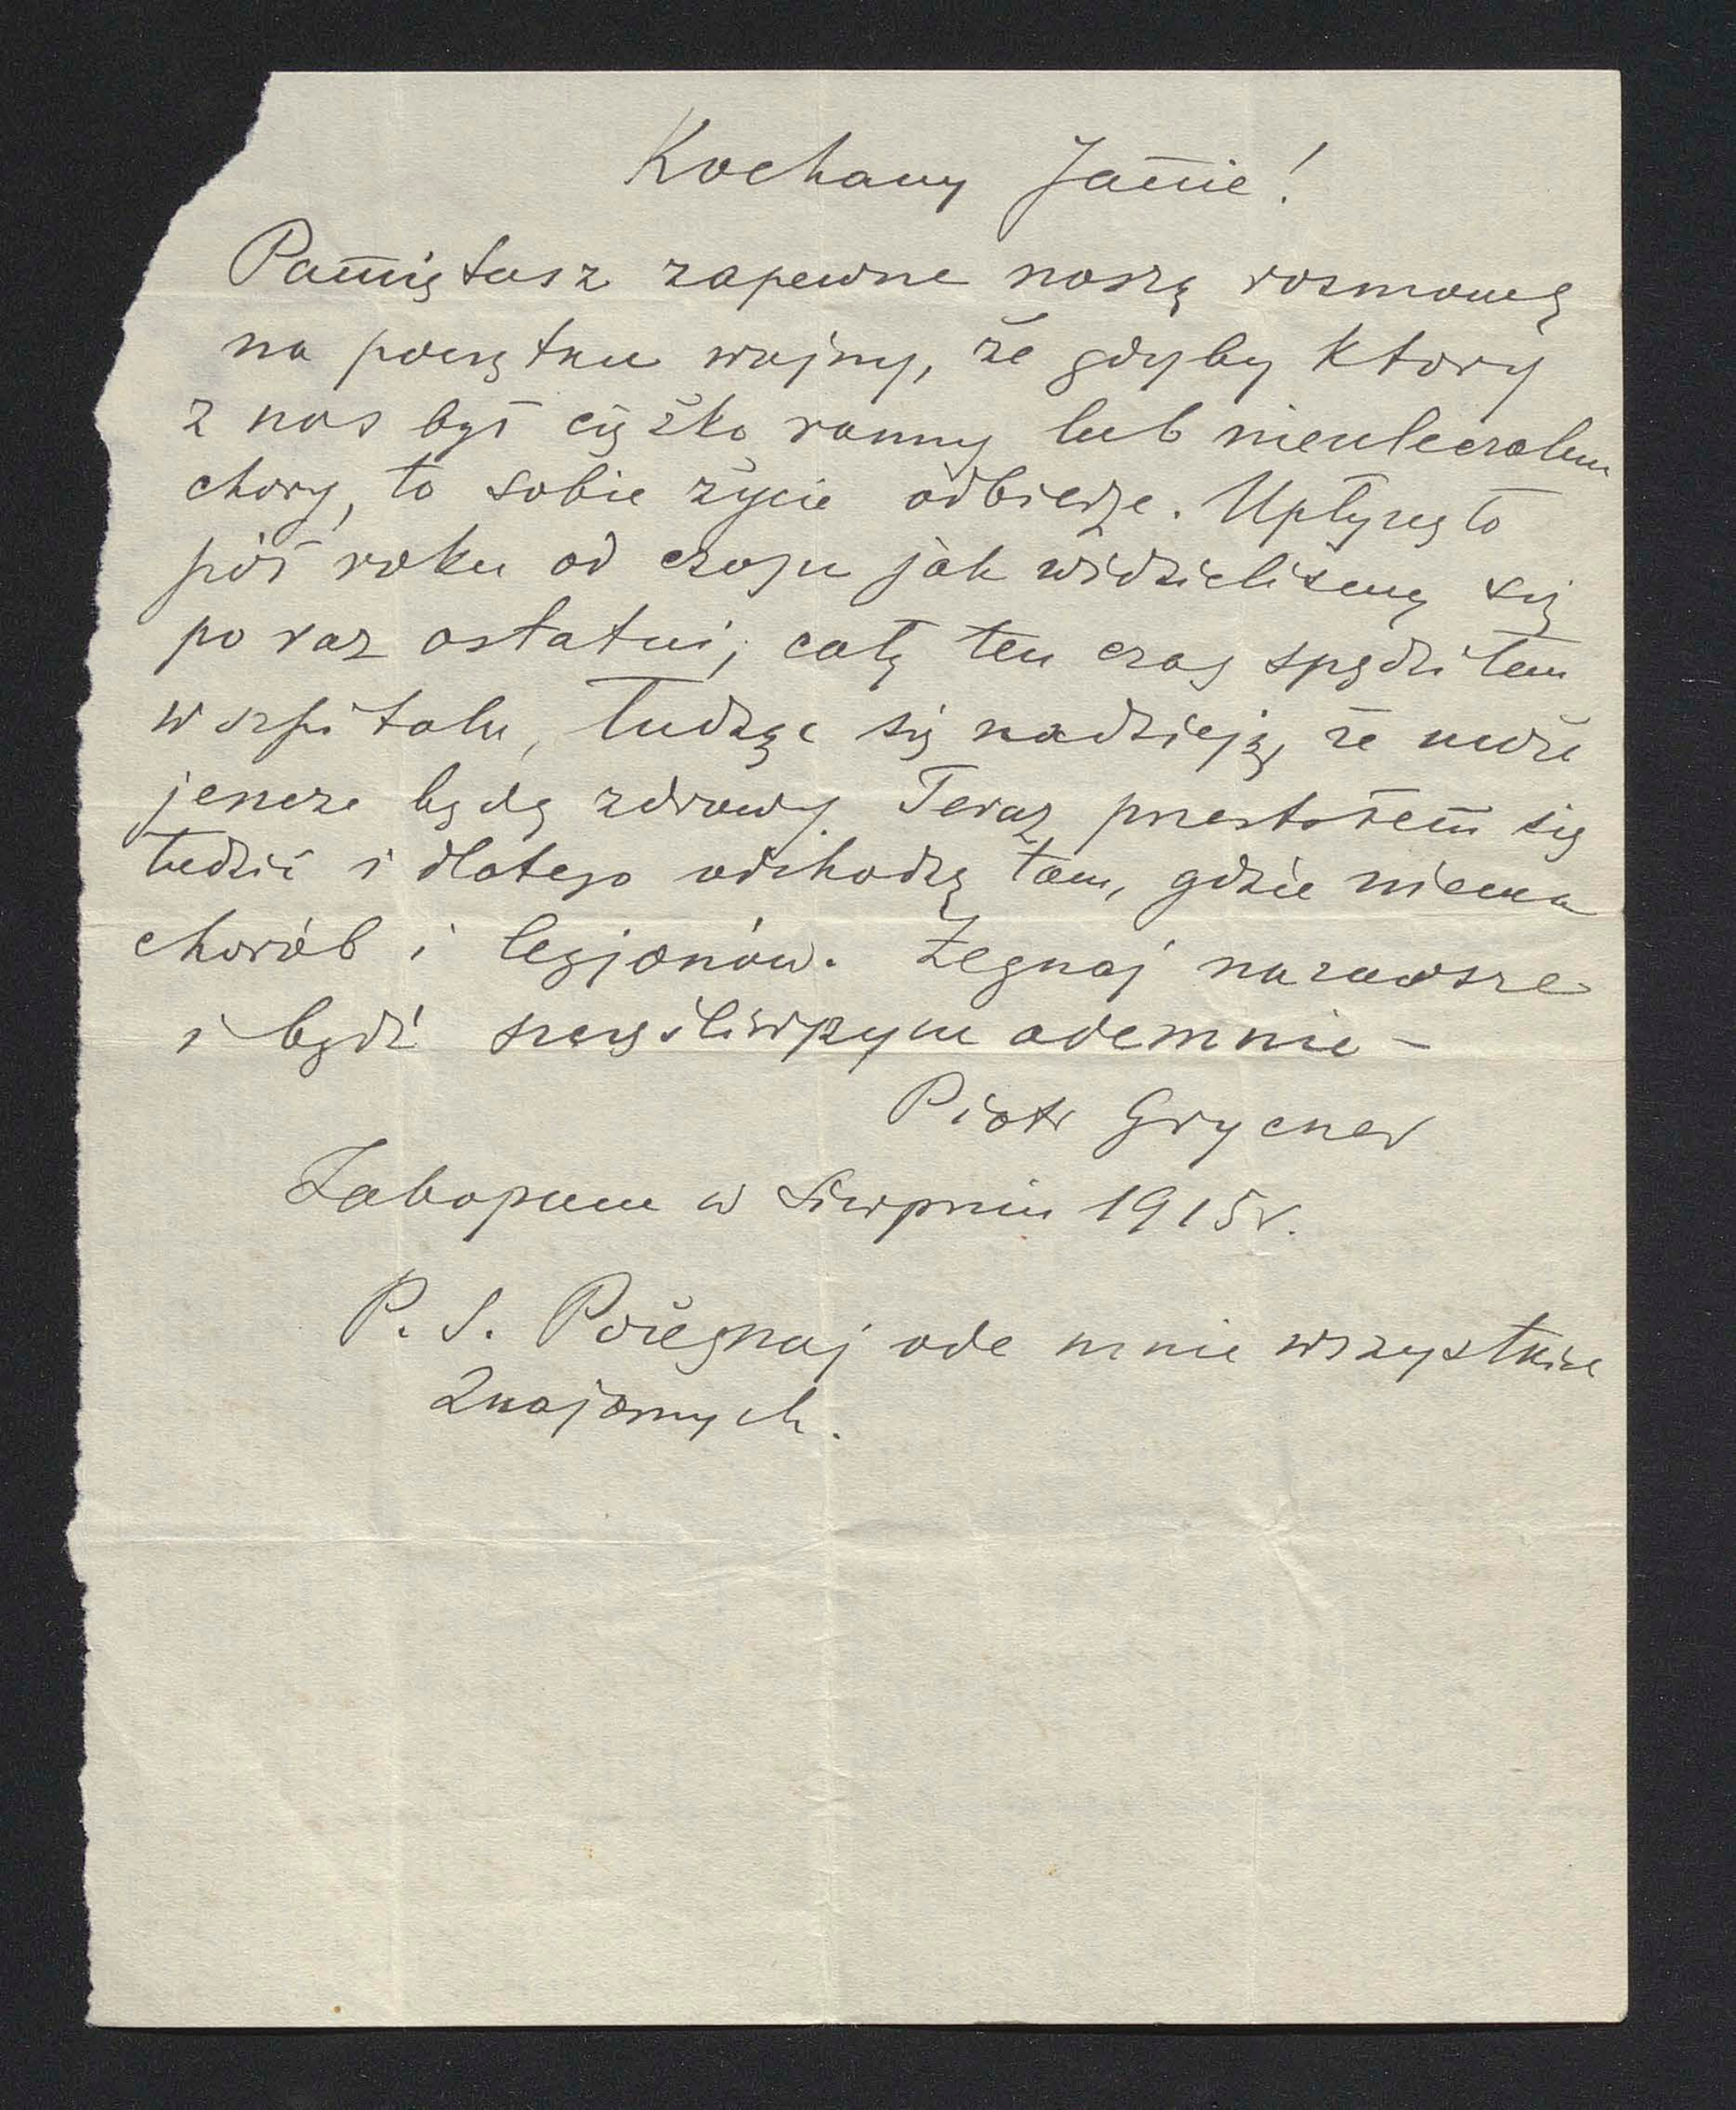 Kochany Janie!
Pamiętasz zapewne naszą rozmowę
na początku wojny, że gdyby ktory
z nas był ciężko ranny lub nieuleczalnie
chory, to sobie życie odbierze. Upłynęło
pół roku od czasu jak widzieliśmy się
po raz ostatni, cały ten czas spędziłem
w szpitalu, łudząc się nadzieją, że może
jeszcze będę zdrowy. Teraz przestałem się
łudzić i dlatego odchodzę tam, gdzie niema
chorób i legjonów. Żegnaj nazawsze
i bądź szczęśliwszym odemnie –
Piotr
Zakopane w Sierpniu 1915 r.
P. S. Pożegnaj ode mnie wszystkich
znajomych.